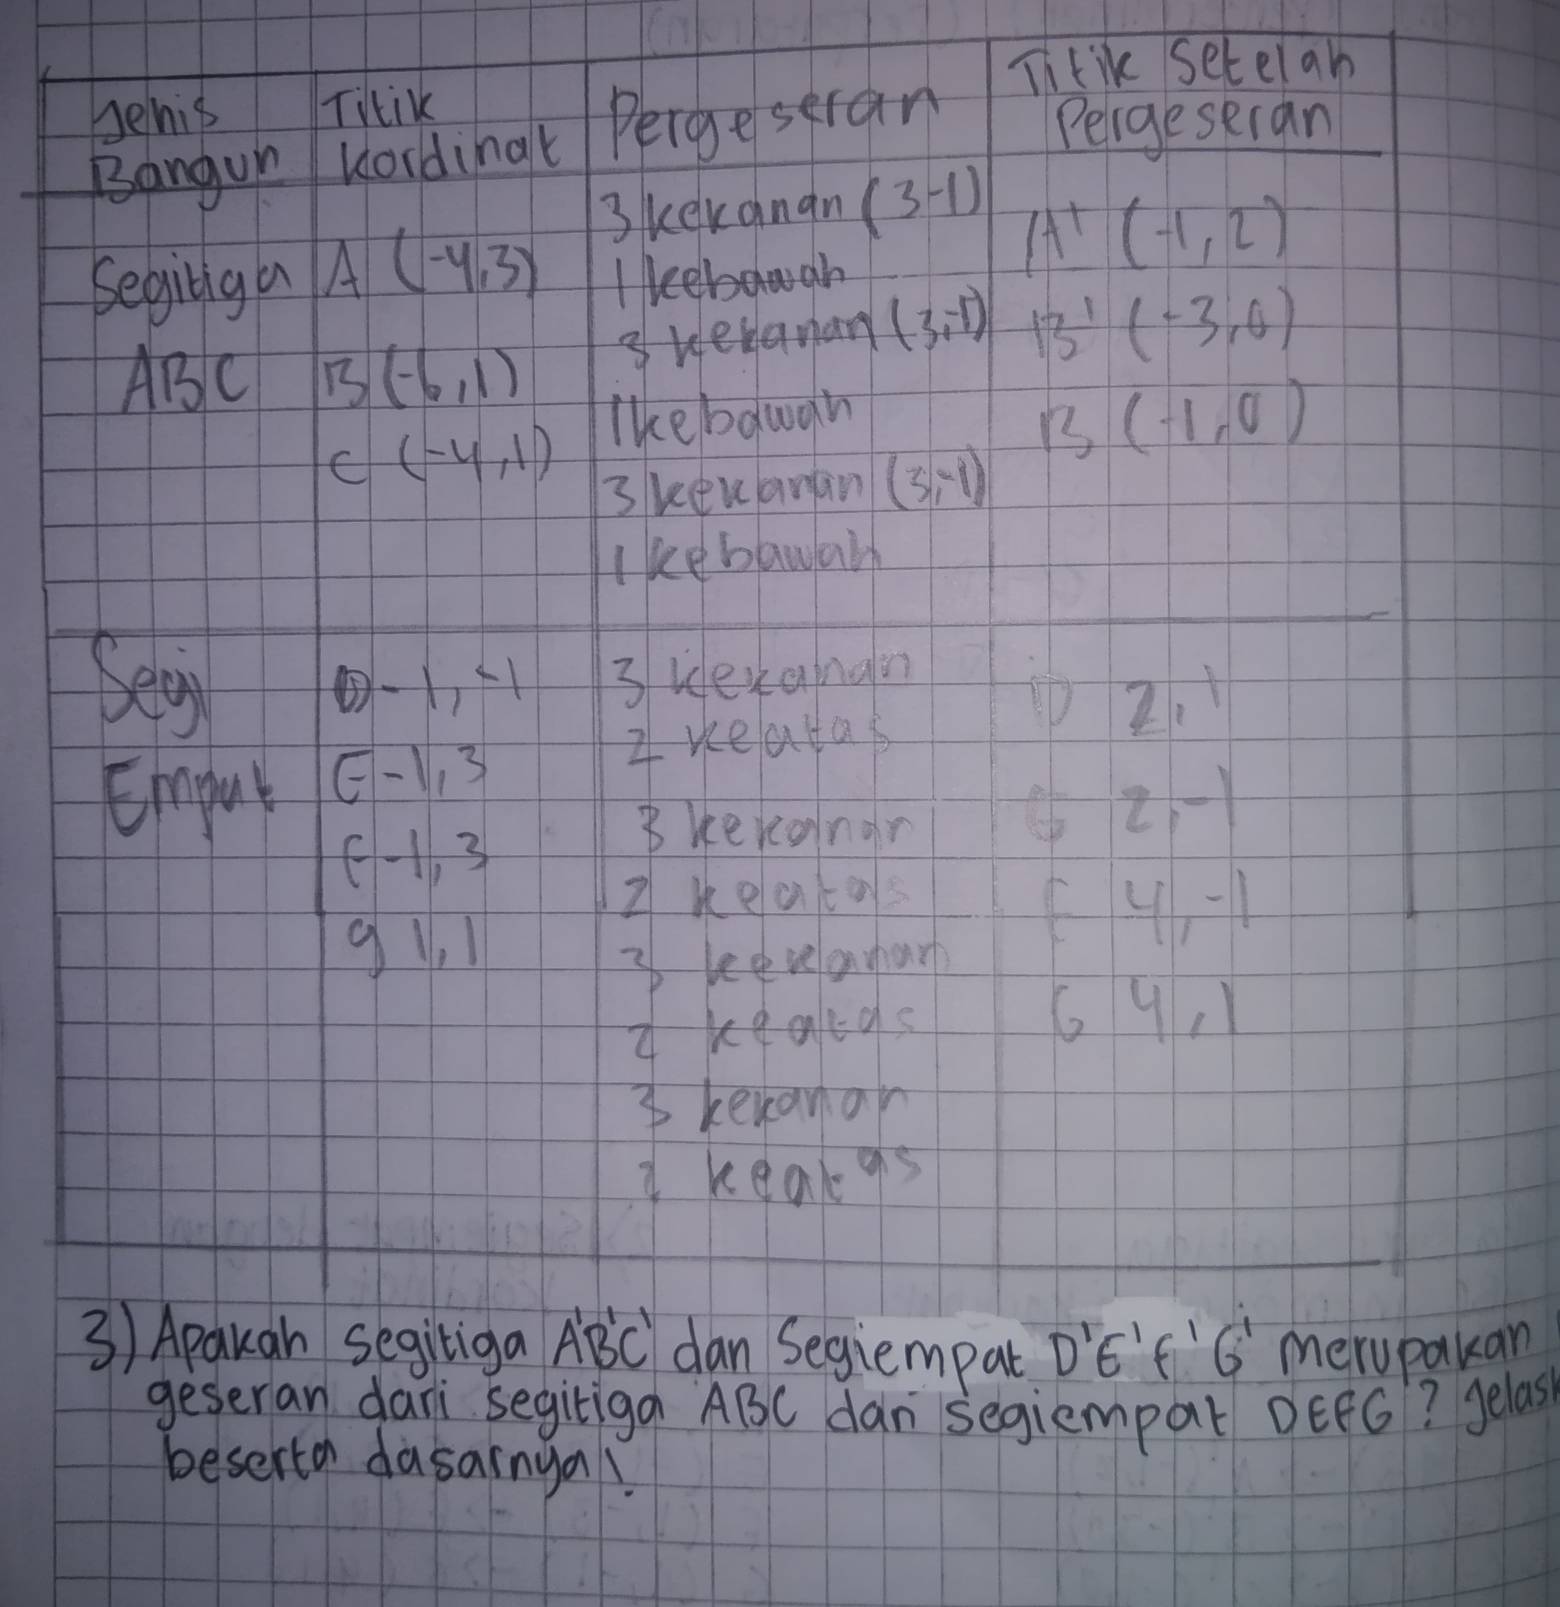 Jenis Bangun | Titik Kordinat | Pergeseran | Titik Setelah Pergeseran
Segitiga ABC
A (-4,3)
B (-6,1)
C (-4,1)
3 kekanan (3-1)
1 kebawah
3 kekanan (3,-1)
1 kebawah
3 kekanan (3,-1)
1 kebawah
A' (-1,2)
B' (-3,0)
B (-1,0)
Segi Empat
D -1,-1
E -1,3
F -1,3
g 1,1
3 kekanan
2 keatas
3 kekanan
2 keatas
3 kekanan
2 keatas
3 kekanan
2 keatas
D 2,1
2,-1
F 4,-1
G 4,1
3) Apakah segitiga A'B'C' dan Segiempat D'E'F'G' merupakan
geseran dari segitiga ABC dan segiempat DEFG? Jelask
beserta dasarnya!